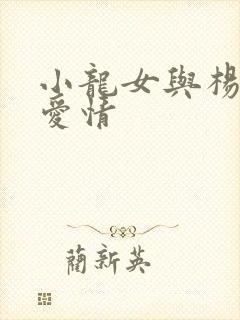 小龍女與楊
愛情
藺新英